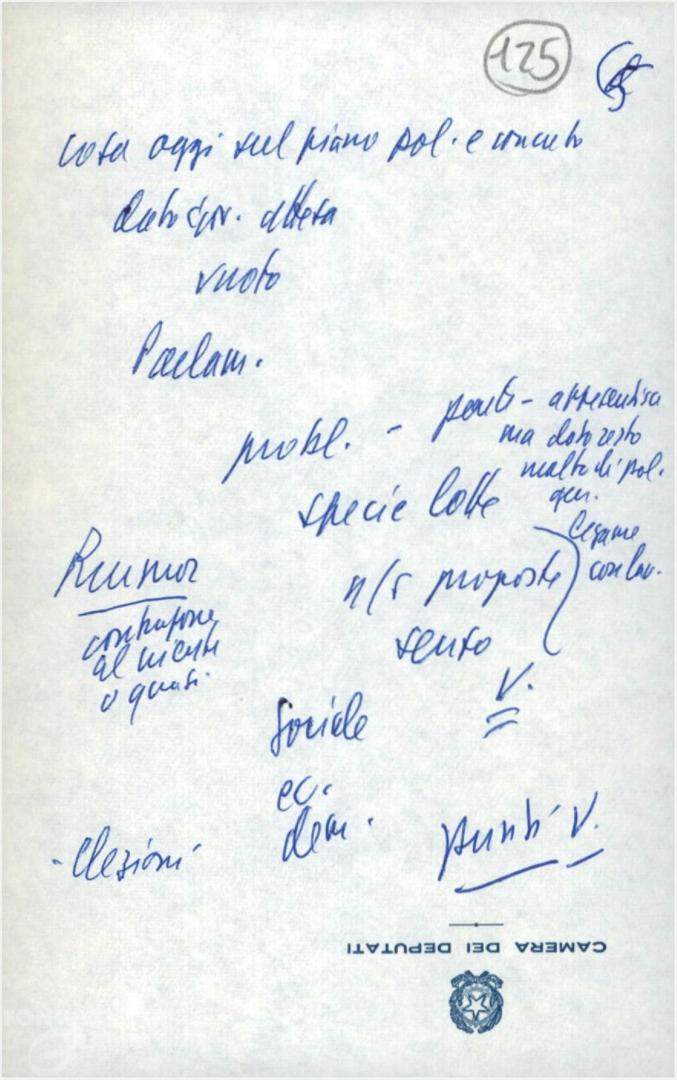 125
cosa oggi sul piano pol. e concreto
dato gov. attesa
vuoto
Parlam.
probl. - 
ma dato resto
molto di pol.
gen.
specie lotte
legame
con lav.
Rumor
n/s proposte
contrapone
al niente
o quasi.
senso
V.
sociale
ec.
dem.
- Elezioni -
punti V.
CAMERA DEI DEPUTATI